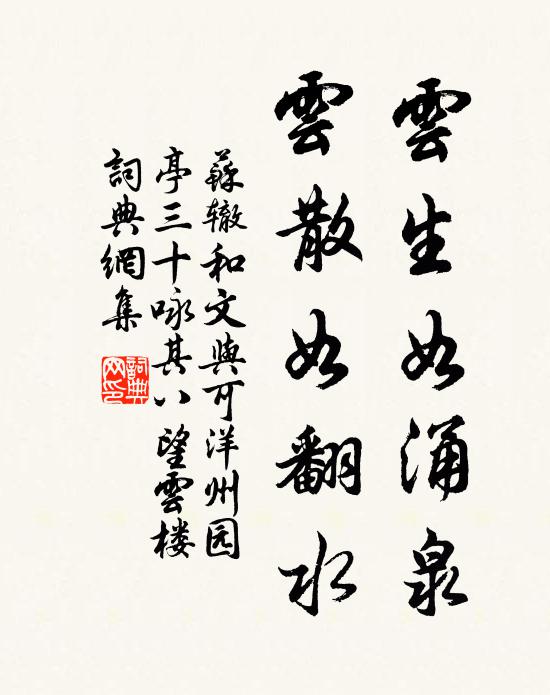 雲生如涌泉
雲散如翻水
蘇辙和文與可洋州园
亭三十咏其八望雲楼
詞典網集
詞典網印